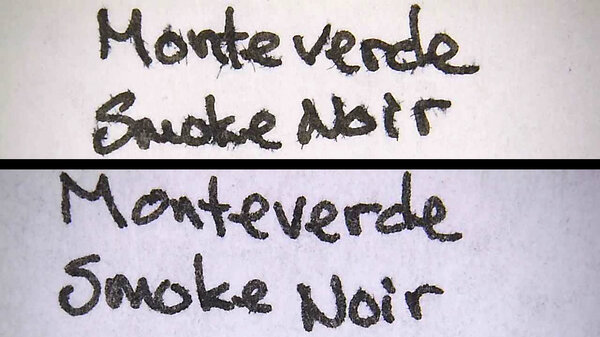 Monteverde
Smoke Noir
Monteverde
Smoke Noir